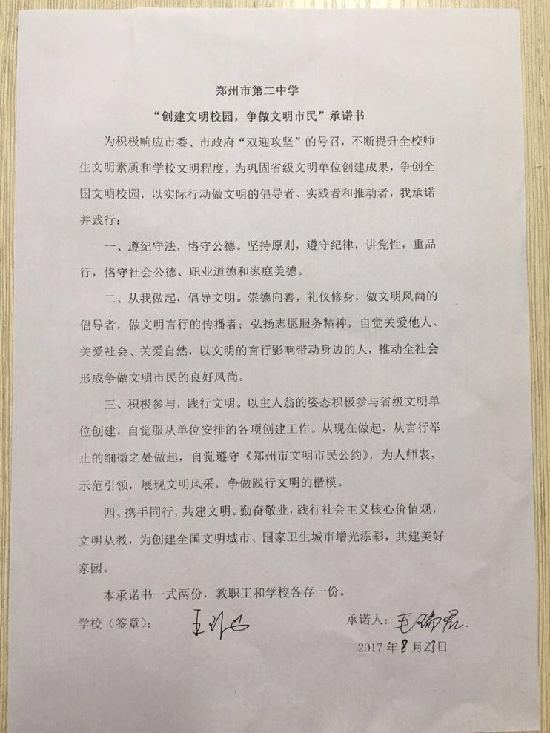 郑州市第二中学
“创建文明校园，争做文明市民”承诺书
为积极响应市委、市政府“双迎攻坚”的号召，不断提升全校师
生文明素质和学校文明程度，为巩固省级文明单位创建成果，争创全
国文明校园，以实际行动做文明的倡导者、实践者和推动者，我承诺
并践行：
一、遵纪守法，恪守公德。坚持原则，遵守纪律，讲党性，重品
行，恪守社会公德、职业道德和家庭美德。
二、从我做起，倡导文明。崇德向善，礼仪修身，做文明风尚的
倡导者，做文明言行的传播者；弘扬志愿服务精神，自觉关爱他人、
关爱社会、关爱自然，以文明的言行影响带动身边的人，推动全社会
形成争做文明市民的良好风尚。
三、积极参与，践行文明。以主人翁的姿态积极参与省级文明单
位创建，自觉服从单位安排的各项创建工作。从现在做起，从言行举
止的细微之处做起，自觉遵守《郑州市文明市民公约》，为人师表，
示范引领，展现文明风采，争做践行文明的楷模。
四、携手同行，共建文明。勤奋敬业，践行社会主义核心价值观，
文明从教，为创建全国文明城市、国家卫生城市增光添彩，共建美好
家园。
本承诺书一式两份，教职工和学校各存一份。
学校（签章）： 承诺人：
2017年8月27日